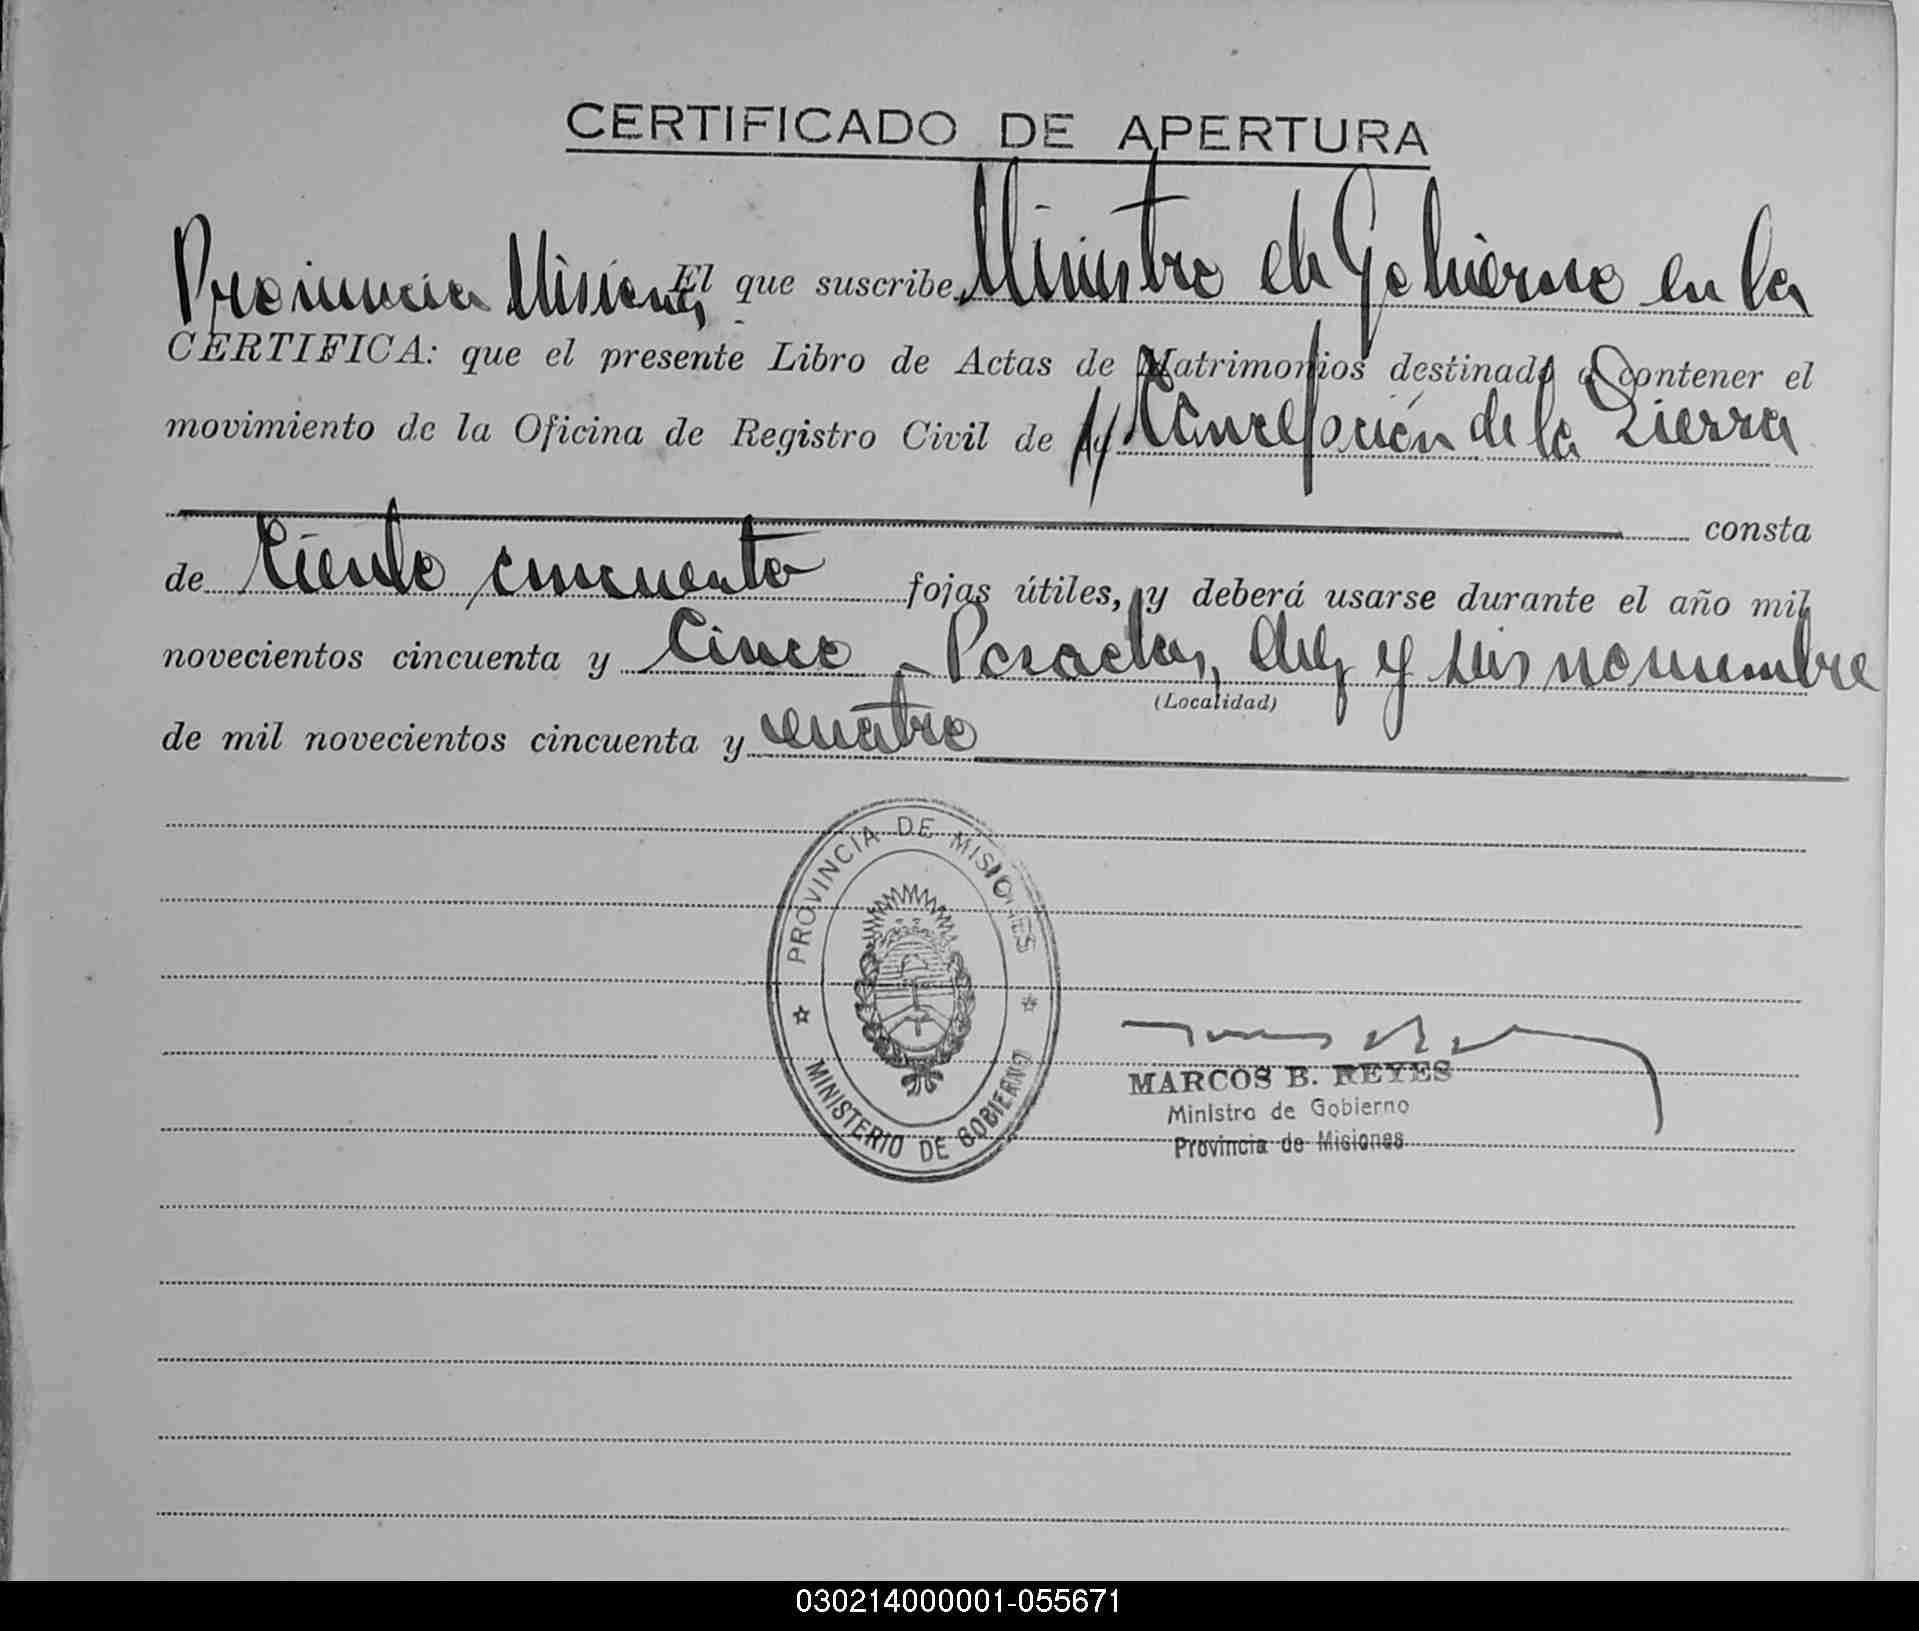 CERTIFICADO DE APERTURA
El que suscribe Ministro de Gobierno en la
Provincia Misiones
CERTIFICA: que el presente Libro de Actas de Matrimonios destinado a contener el
movimiento de la Oficina de Registro Civil de Concepción de la Sierra
consta
de Ciento cincuenta fojas útiles, y deberá usarse durante el año mil
novecientos cincuenta y Cinco - Posadas, diez y seis noviembre
(Localidad)
de mil novecientos cincuenta y cuatro
PROVINCIA DE MISIONES
MINISTERIO DE GOBIERNO
MARCOS B. REYES
Ministro de Gobierno
Provincia de Misiones
030214000001-055671